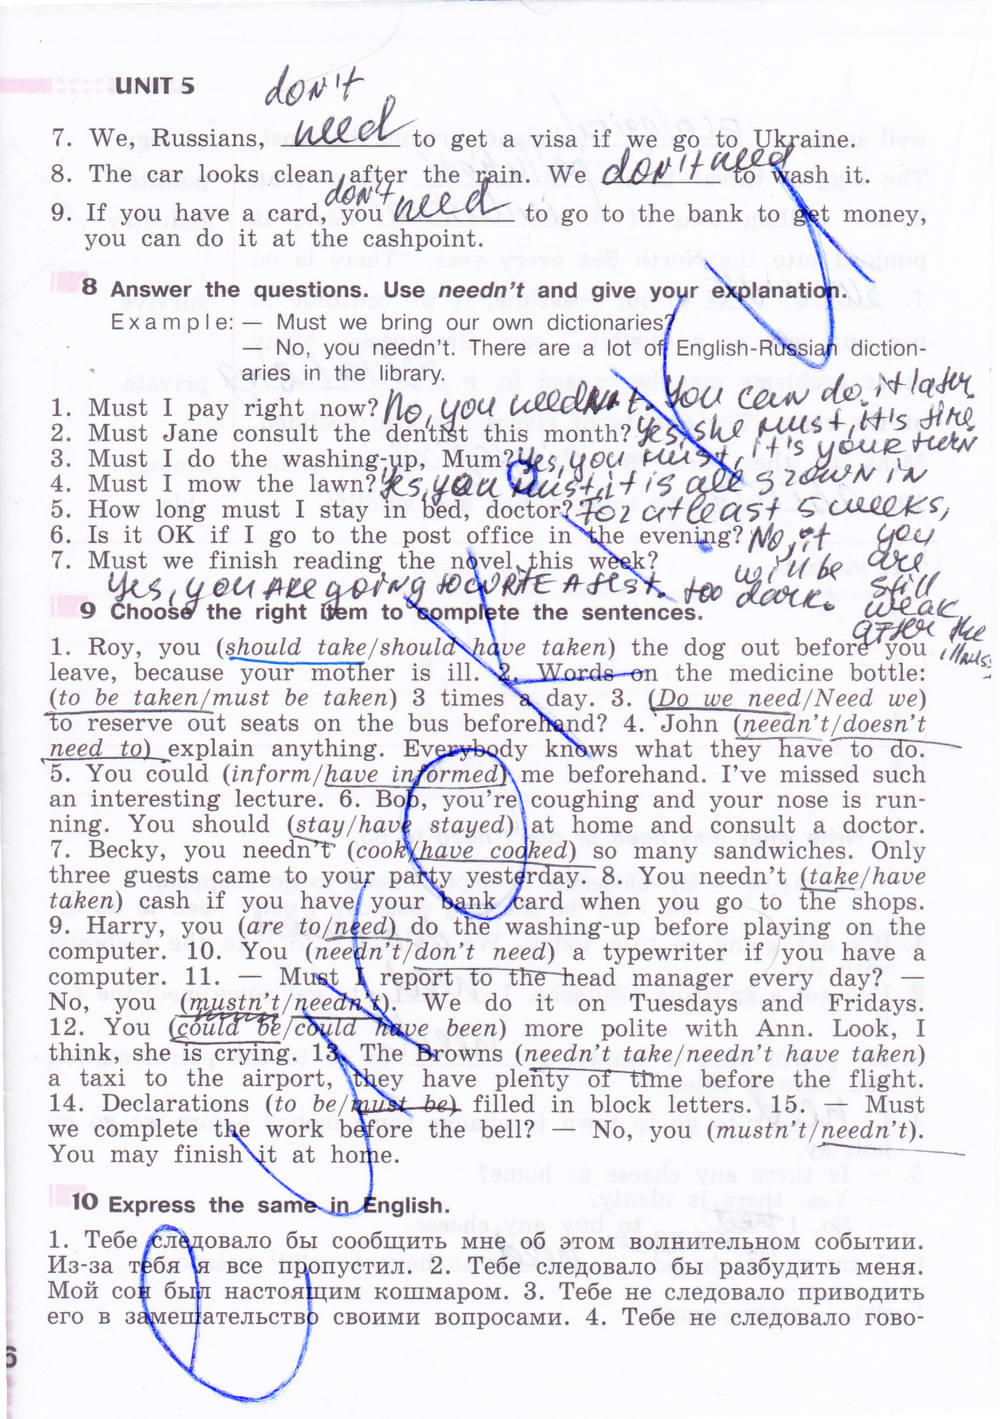 UNIT 5
don't
7. We, Russians, need to get a visa if we go to Ukraine.
8. The car looks clean after the rain. We don't need to wash it.
don't
9. If you have a card, you need to go to the bank to get money,
you can do it at the cashpoint.
8 Answer the questions. Use needn't and give your explanation.
Example: — Must we bring our own dictionaries?
— No, you needn't. There are a lot of English-Russian diction-
aries in the library.
1. Must I pay right now? No, you needn't. You can do it later
2. Must Jane consult the dentist this month? Yes, she must, it's time
3. Must I do the washing-up, Mum? Yes, you must, it's your turn
4. Must I mow the lawn? Yes, you must, it is all grown in
5. How long must I stay in bed, doctor? For at least 5 weeks,
6. Is it OK if I go to the post office in the evening? No, it you
7. Must we finish reading the novel this week? will be are
Yes, you are going to write a test. too dark. still
weak
9 Choose the right item to complete the sentences.
after the
illness
1. Roy, you (should take/should have taken) the dog out before you
leave, because your mother is ill. 2. Words on the medicine bottle:
(to be taken/must be taken) 3 times a day. 3. (Do we need/Need we)
to reserve out seats on the bus beforehand? 4. John (needn't/doesn't
need to) explain anything. Everybody knows what they have to do.
5. You could (inform/have informed) me beforehand. I've missed such
an interesting lecture. 6. Bob, you're coughing and your nose is run-
ning. You should (stay/have stayed) at home and consult a doctor.
7. Becky, you needn't (cook/have cooked) so many sandwiches. Only
three guests came to your party yesterday. 8. You needn't (take/have
taken) cash if you have your bank card when you go to the shops.
9. Harry, you (are to/need) do the washing-up before playing on the
computer. 10. You (needn't/don't need) a typewriter if you have a
computer. 11. — Must I report to the head manager every day? —
No, you (mustn't/needn't). We do it on Tuesdays and Fridays.
12. You (could be/could have been) more polite with Ann. Look, I
think, she is crying. 13. The Browns (needn't take/needn't have taken)
a taxi to the airport, they have plenty of time before the flight.
14. Declarations (to be/must be) filled in block letters. 15. — Must
we complete the work before the bell? — No, you (mustn't/needn't).
You may finish it at home.
10 Express the same in English.
1. Тебе следовало бы сообщить мне об этом волнительном событии.
Из-за тебя я все пропустил. 2. Тебе следовало бы разбудить меня.
Мой сон был настоящим кошмаром. 3. Тебе не следовало приводить
его в замешательство своими вопросами. 4. Тебе не следовало гово-
6